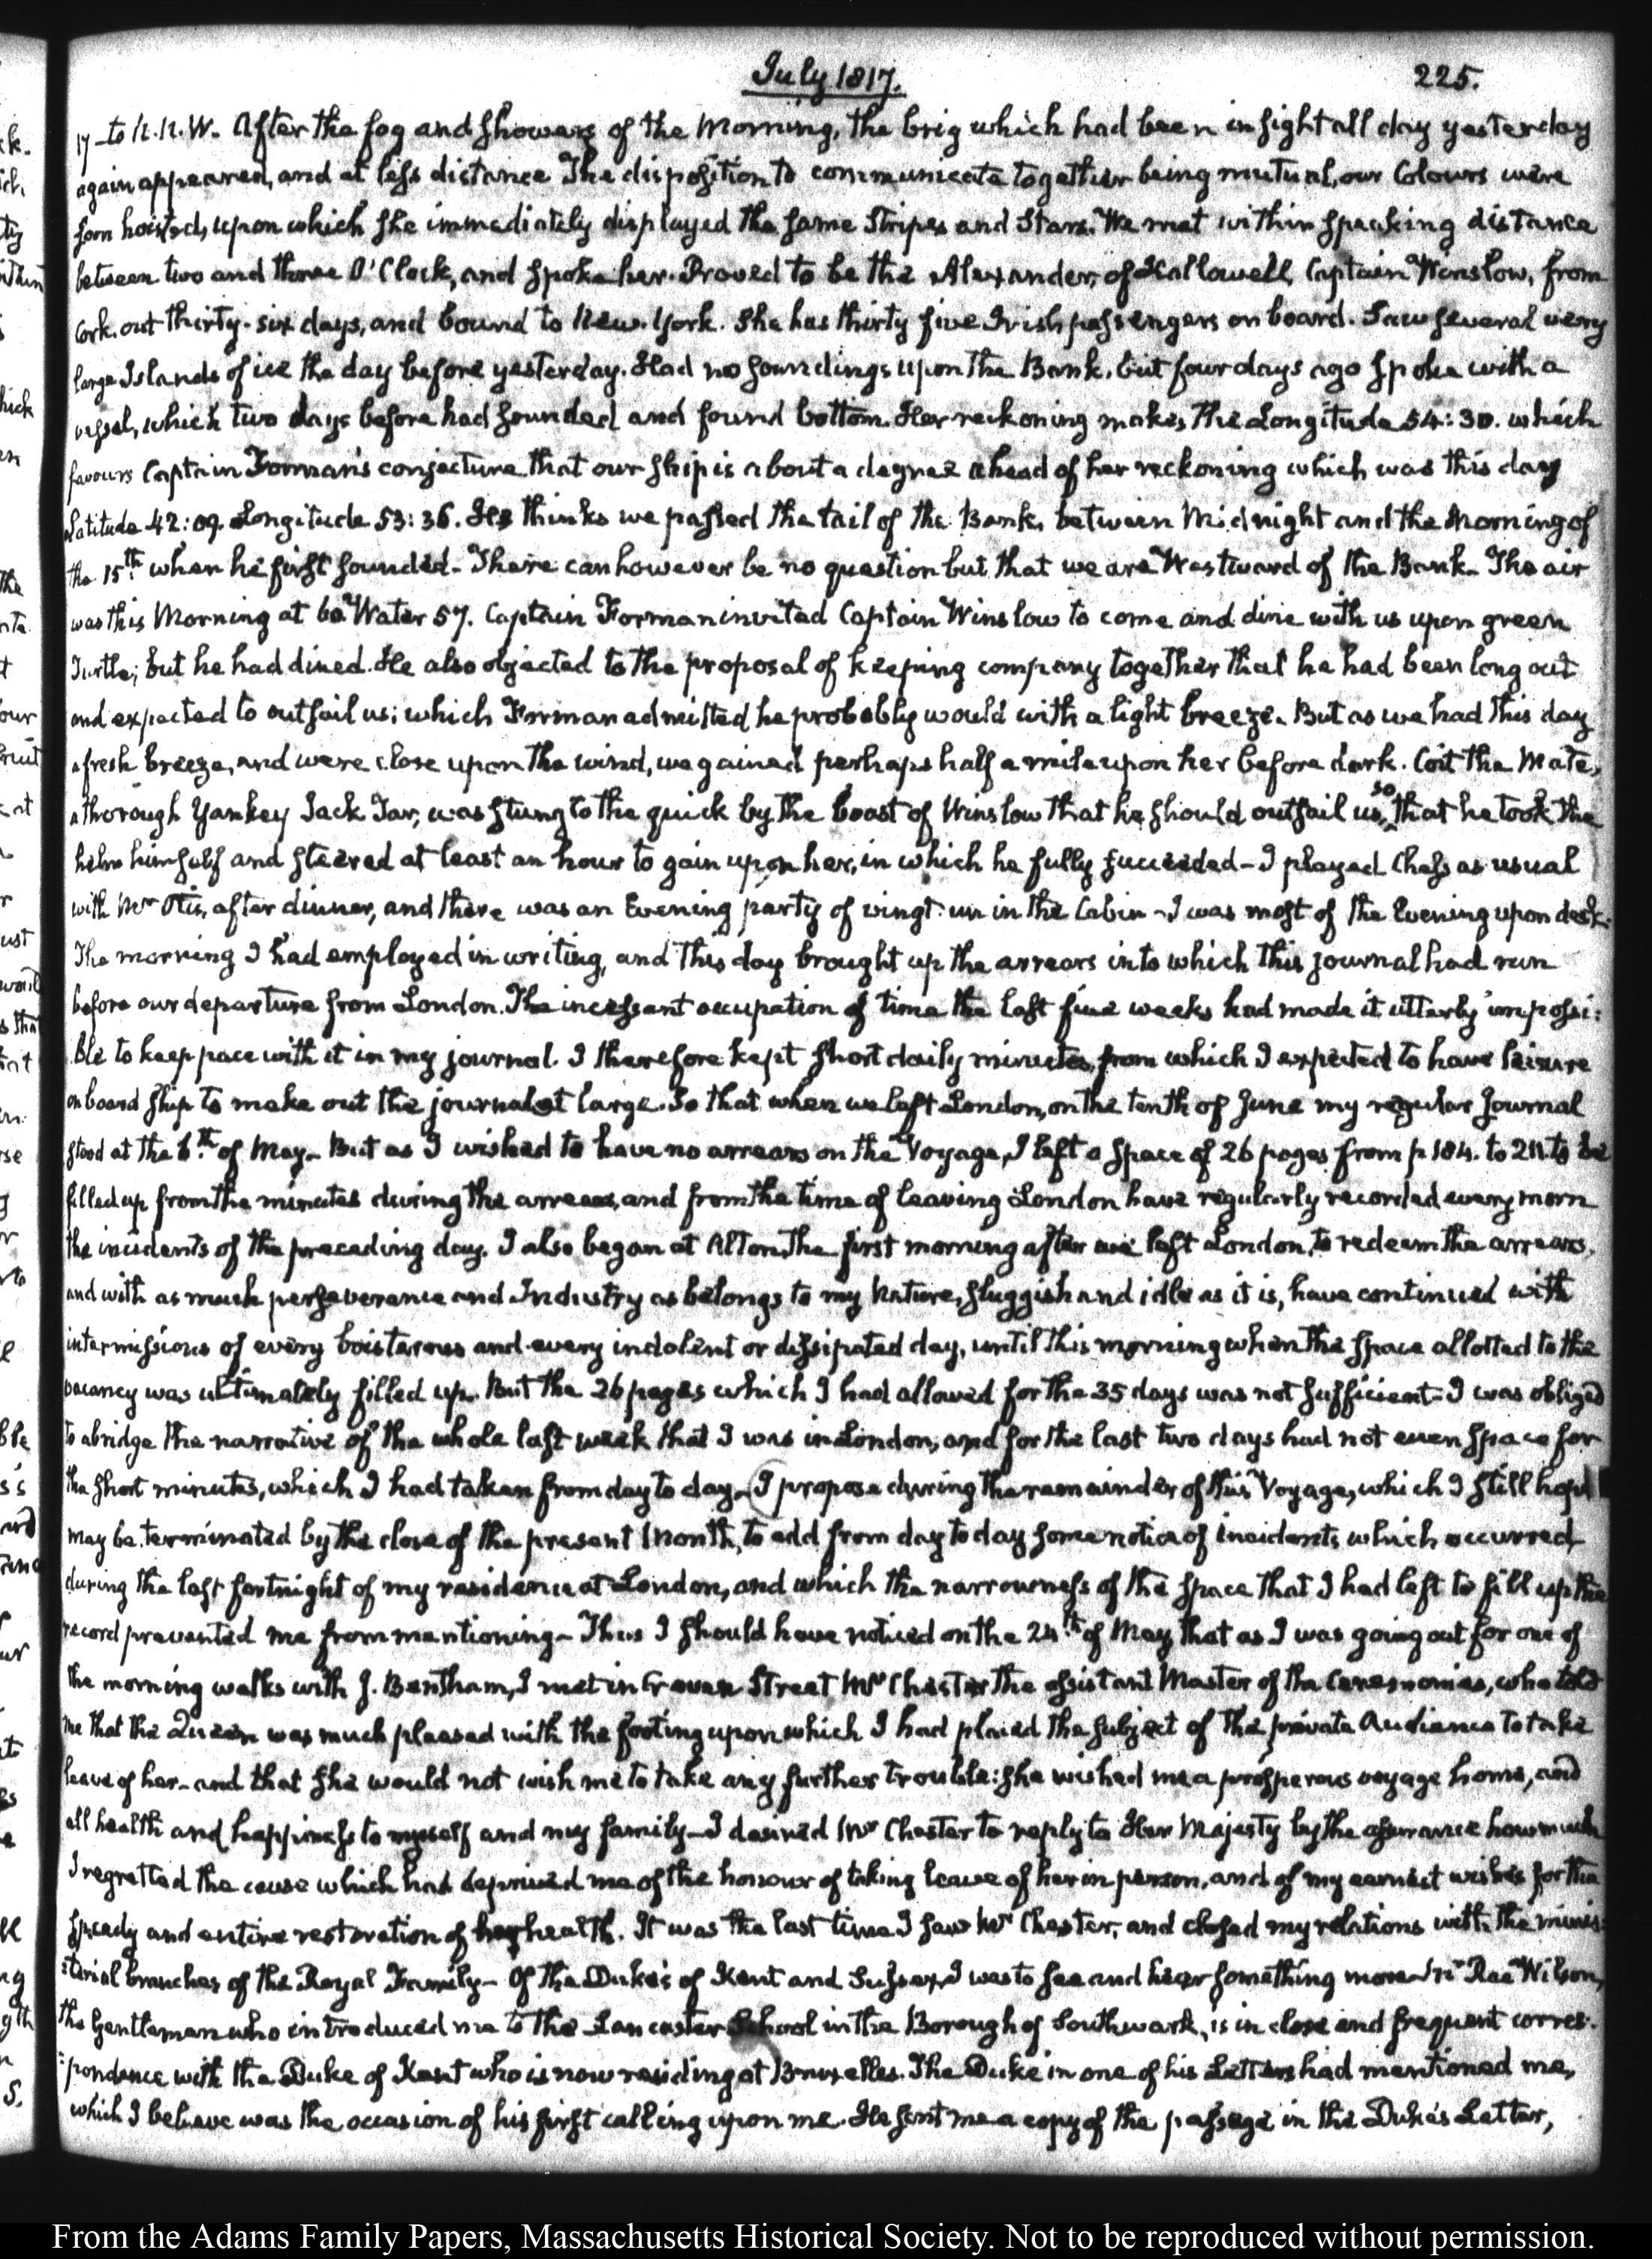 July 1817.
225.
17— to N.N.W. After the fog and showers of the Morning, the brig which had been in sight all day yesterday
again appeared, and at less distance The disposition to communicate together being mutual, our Colours were
soon hoisted, upon which she immediately displayed the same Stripes and Stars. We met within speaking distance
between two and three O'Clock, and spoke her. Proved to be the Alexander, of Hallowell, Captain Winslow, from
Cork, out thirty-six days, and bound to New-York. She has thirty five Irish passengers on board. Saw several very
large Islands of ice the day before yesterday. Had no soundings upon the Bank, but four days ago spoke with a
vessel, which two days before had sounded and found bottom. Her reckoning makes the Longitude 54:30. which
favours Captain Forman's conjecture that our ship is about a degree ahead of her reckoning which was this day
Latitude 42:09. Longitude 53:36. He thinks we passed the tail of the Bank, between Midnight and the Morning of
the 15th when he first sounded— There can however be no question but that we are Westward of the Bank— The air
was this Morning at 60 Water 57. Captain Forman invited Captain Winslow to come and dine with us upon green
Turtle; but he had dined. He also objected to the proposal of keeping company together that he had been long out
and expected to outsail us; which Forman admitted he probably would with a light breeze. But as we had this day
a fresh breeze, and were close upon the wind, we gained perhaps half a mile upon her before dark. Coit the Mate,
a thorough Yankey Jack Tar, was stung to the quick by the boast of Winslow that he should outsail us, so that he took the
helm himself and steered at least an hour to gain upon her, in which he fully succeeded— I played Chess as usual
with Mr Otis, after dinner, and there was an Evening party of vingt-un in the Cabin— I was most of the Evening upon deck.
The morning I had employed in writing, and this day brought up the arrears into which this journal had run
before our departure from London. The incessant occupation of time the last five weeks had made it utterly impossi:
ble to keep pace with it in my journal. I therefore kept short daily minutes, from which I expected to have leisure
on board ship to make out the journal at large. So that when we left London, on the tenth of June my regular journal
stood at the 6th of May— But as I wished to have no arrears on the Voyage, I left a space of 26 pages from p 184. to 211. to be
filled up from the minutes during the arrears, and from the time of leaving London have regularly recorded every morn
the incidents of the preceding day. I also began at Alton the first morning after we left London, to redeem the arrears,
and with as much perseverance and Industry as belongs to my Nature, sluggish and idle as it is, have continued with
intermissions of every boisterous and every indolent or dissipated day, until this morning when the space allotted to the
vacancy was ultimately filled up. But the 26 pages which I had allowed for the 35 days was not sufficient— I was obliged
to abridge the narrative of the whole last week that I was in London, and for the last two days had not even space for
the short minutes, which I had taken from day to day— I propose during the remainder of this Voyage, which I still hope
may be terminated by the close of the present Month, to add from day to day some notice of incidents which occurred
during the last fortnight of my residence at London, and which the narrowness of the space that I had left to fill up the
record prevented me from mentioning— Thus I should have noticed on the 24th of May that as I was going out for one of
the morning walks with J. Bentham, I met in Craven Street Mr Chester the assistant Master of the Ceremonies, who told
me that the Queen was much pleased with the footing upon which I had placed the subject of the private Audience to take
leave of her— and that she would not wish me to take any further trouble: she wished me a prosperous voyage home, and
all health and happiness to myself and my family— I desired Mr Chester to reply to Her Majesty by the assurance how much
I regretted the cause which had deprived me of the honour of taking leave of her in person, and of my earnest wishes for the
speedy and entire restoration of her health. It was the last time I saw Mr Chester, and closed my relations with the minis:
:terial branches of the Royal Family— Of the Dukes of Kent and Sussex, I was to see and hear something more— Mr Rae Wilson,
the Gentleman who introduced me to the Lancaster School in the Borough of Southwark, is in close and frequent corres:
:pondence with the Duke of Kent who is now residing at Bruxelles. The Duke in one of his Letters had mentioned me,
which I believe was the occasion of his first calling upon me. He sent me a copy of the passage in the Duke's Letter,
From the Adams Family Papers, Massachusetts Historical Society. Not to be reproduced without permission.